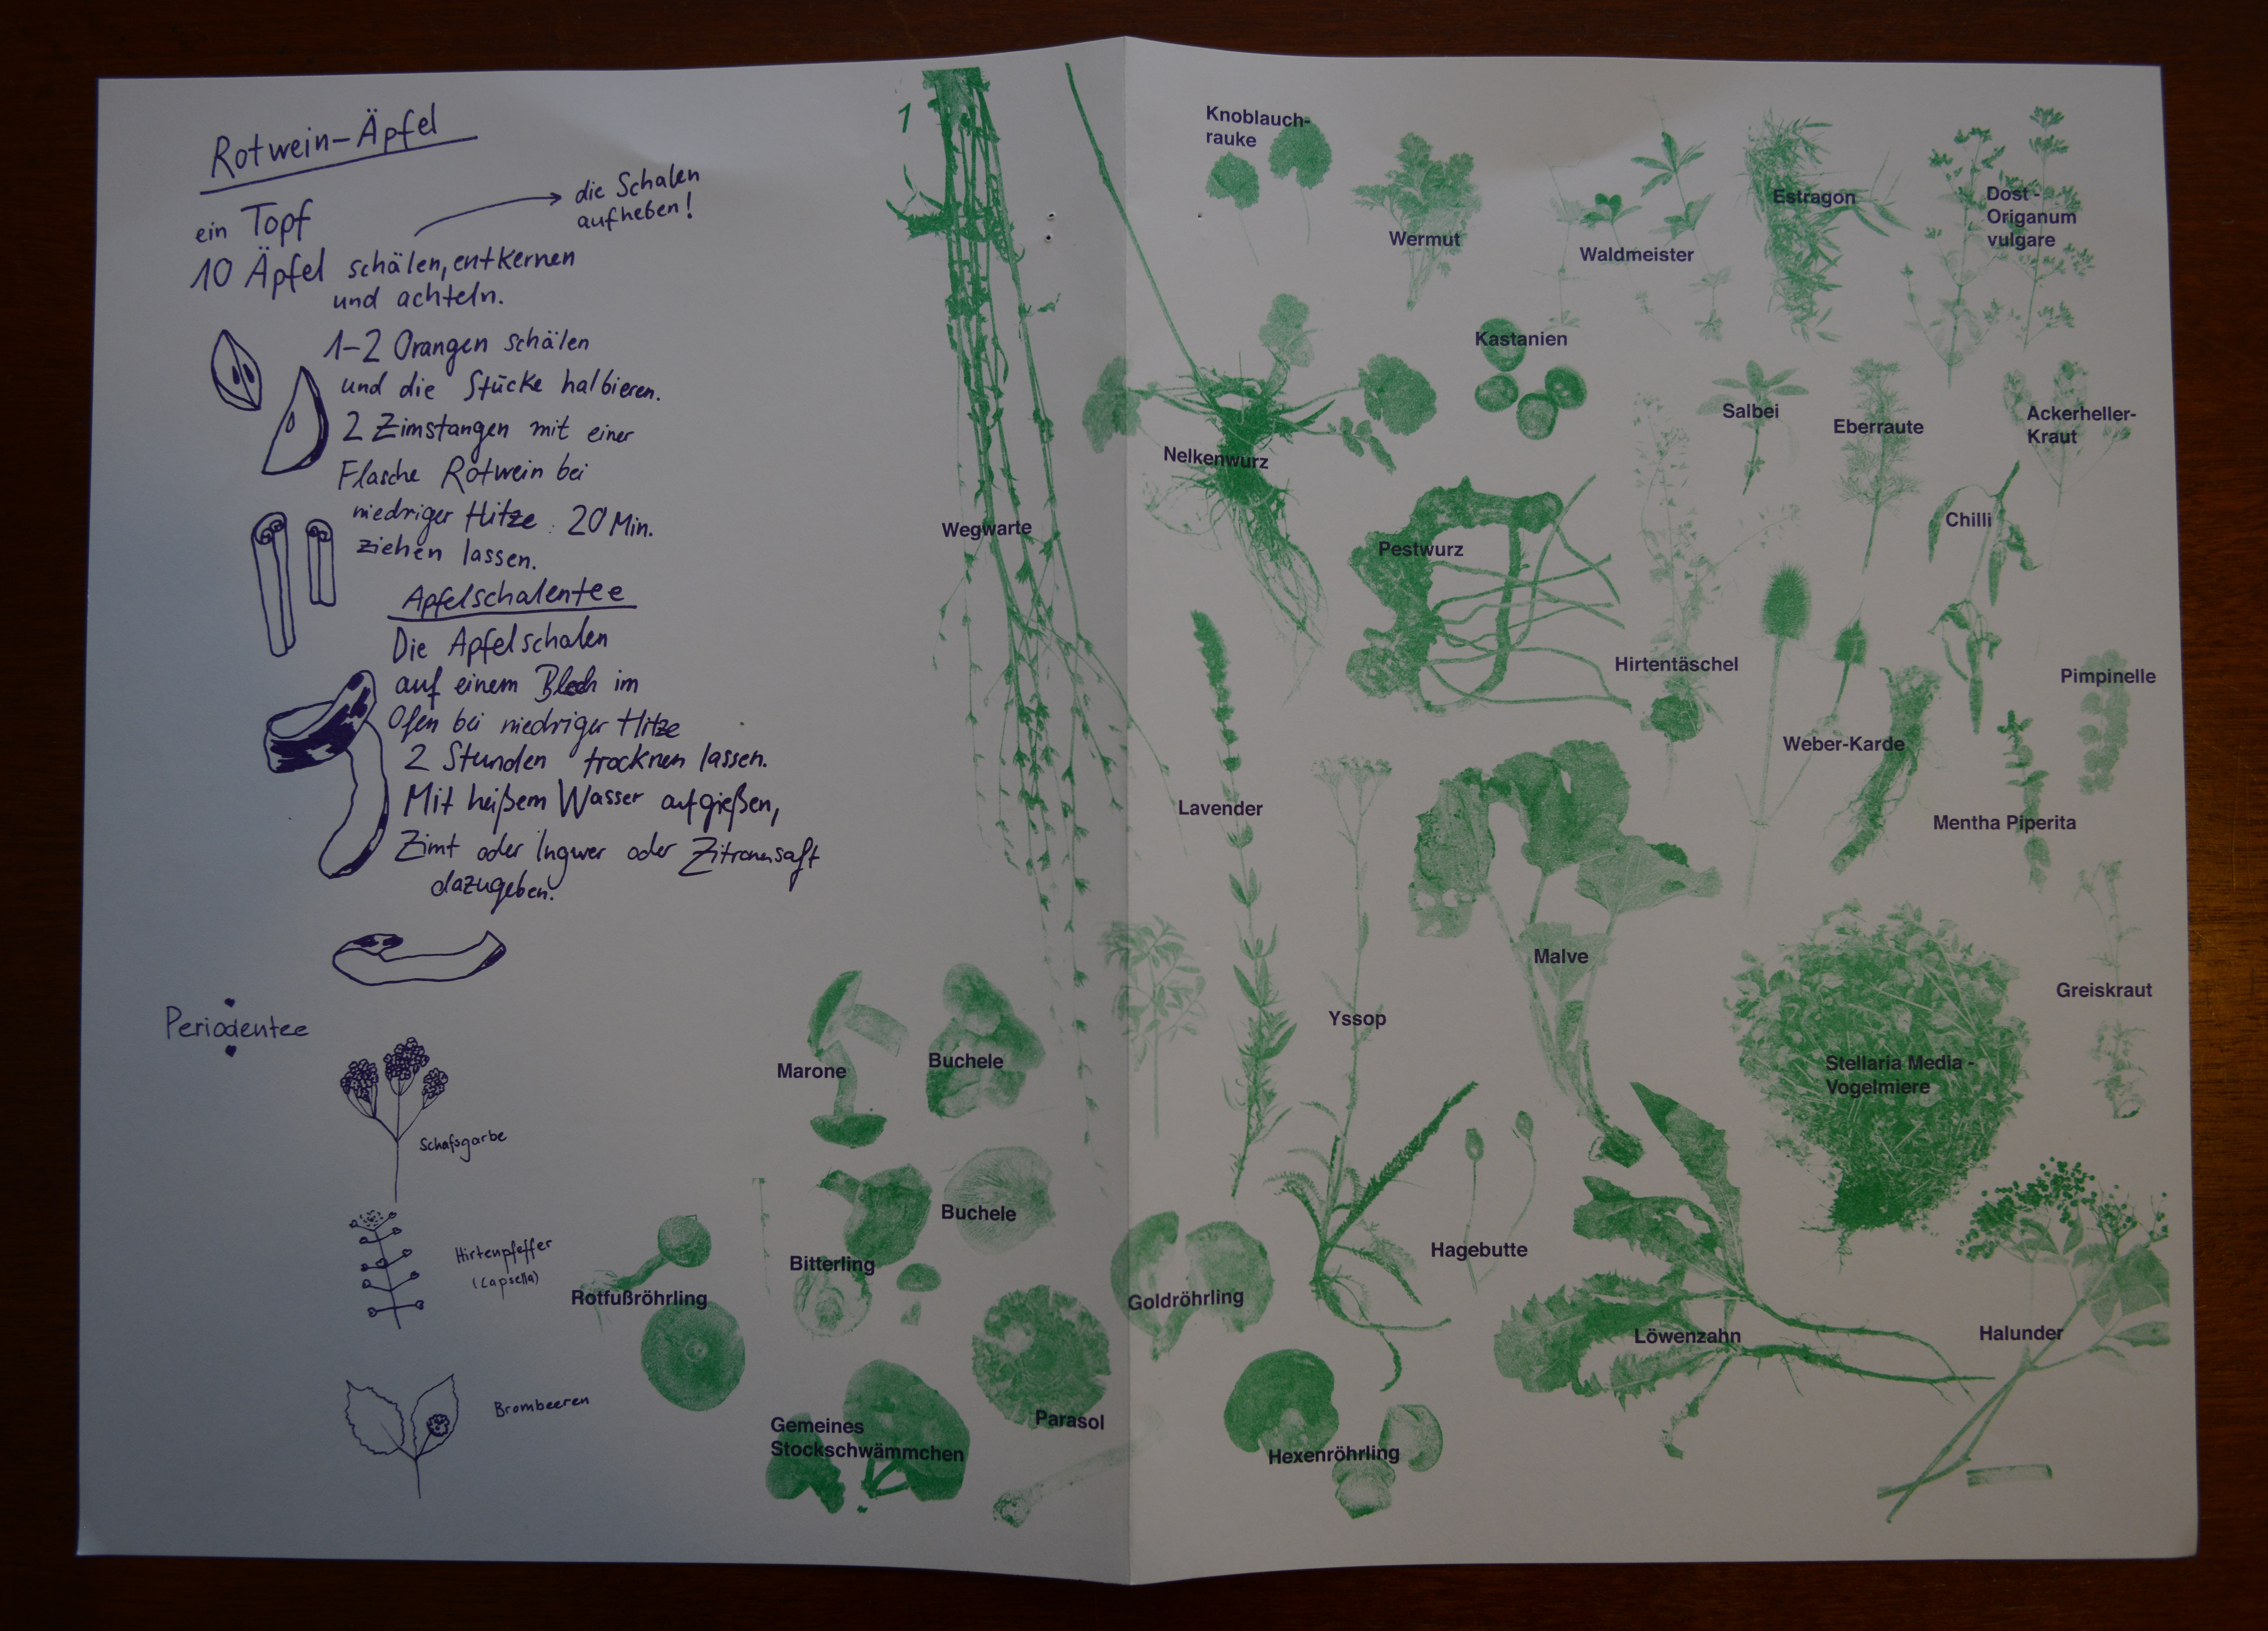 Rotwein-Äpfel
ein Topf
die Schalen
aufheben!
10 Äpfel schälen, entkernen
und achteln.
1-2 Orangen schälen
und die Stücke halbieren.
2 Zimstangen mit einer
Flasche Rotwein bei
niedriger Hitze 20 Min.
ziehen lassen.
Apfelschalentee
Die Apfelschalen
auf einem Blech im
Ofen bei niedriger Hitze
2 Stunden trocknen lassen.
Mit heißem Wasser aufgießen,
Zimt oder Ingwer oder Zitronensaft
dazugeben.
Periodentee
Schafsgarbe
Hirtenpfeffer
(Capsella)
Brombeeren
1
Wegwarte
Marone
Buchele
Buchele
Bitterling
Rotfußröhrling
Gemeines
Stockschwämmchen
Parasol
Knoblauch-
rauke
Wermut
Waldmeister
Estragon
Dost -
Origanum
vulgare
Kastanien
Nelkenwurz
Salbei
Eberraute
Ackerheller-
Kraut
Pestwurz
Chilli
Hirtentäschel
Pimpinelle
Weber-Karde
Lavender
Mentha Piperita
Malve
Yssop
Greiskraut
Stellaria Media -
Vogelmiere
Hagebutte
Goldröhrling
Löwenzahn
Halunder
Hexenröhrling